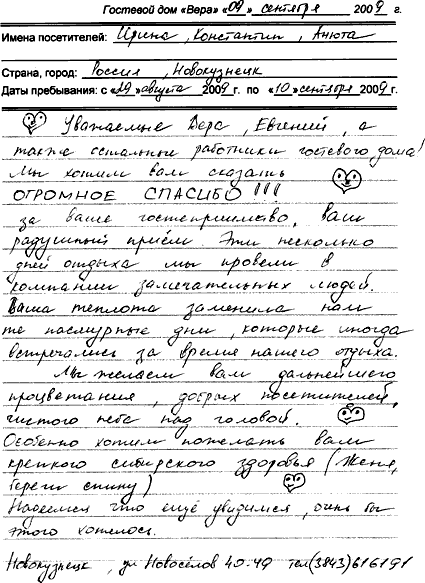 Гостевой дом «Вера» «09» сентября 2009 г.
Имена посетителей: Ирина, Константин, Анюта
Страна, город: Россия, Новокузнецк
Даты пребывания: с «29» августа 2009 г. по «10» сентября 2009 г.
Уважаемые Вера, Евгений, а
также остальные работники гостевого дома!
Мы хотим вам сказать
ОГРОМНОЕ СПАСИБО!!!
за ваше гостеприимство, ваш
радушный приём. Эти несколько
дней отдыха мы провели в
компании замечательных людей.
Ваша теплота заменила нам
те пасмурные дни, которые иногда
встречались за время нашего отдыха.
Мы желаем вам дальнейшего
процветания, добрых посетителей,
чистого неба над головой.
Особенно хотим пожелать вам
крепкого сибирского здоровья (Женя,
береги спину)
Надеемся что ещё увидимся, очень бы
этого хотелось.
Новокузнецк, ул Новосёлов 40-49 тел(3843)616191